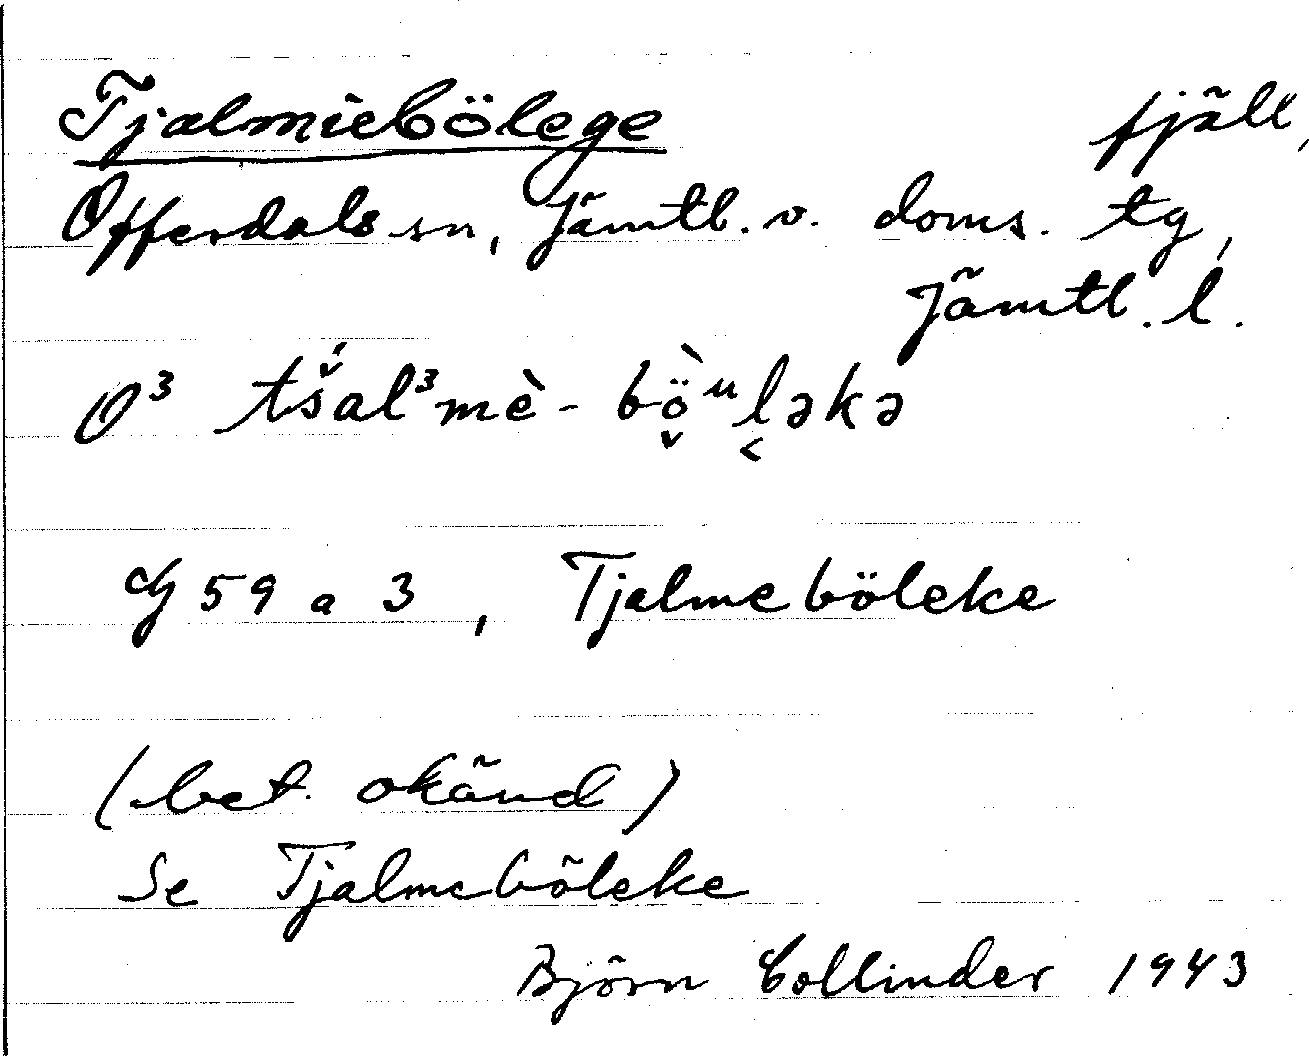 Tjalmiebölege fjäll,
Offerdals sn, Jämtl. v. doms. tg,
Jämtl. l.
O³ tš́al³mè - bö̬̀ᵘl̬əkə
G 59 a 3, Tjalmeböleke
(bet. okänd)
Se Tjalmeböleke
Björn Collinder 1943